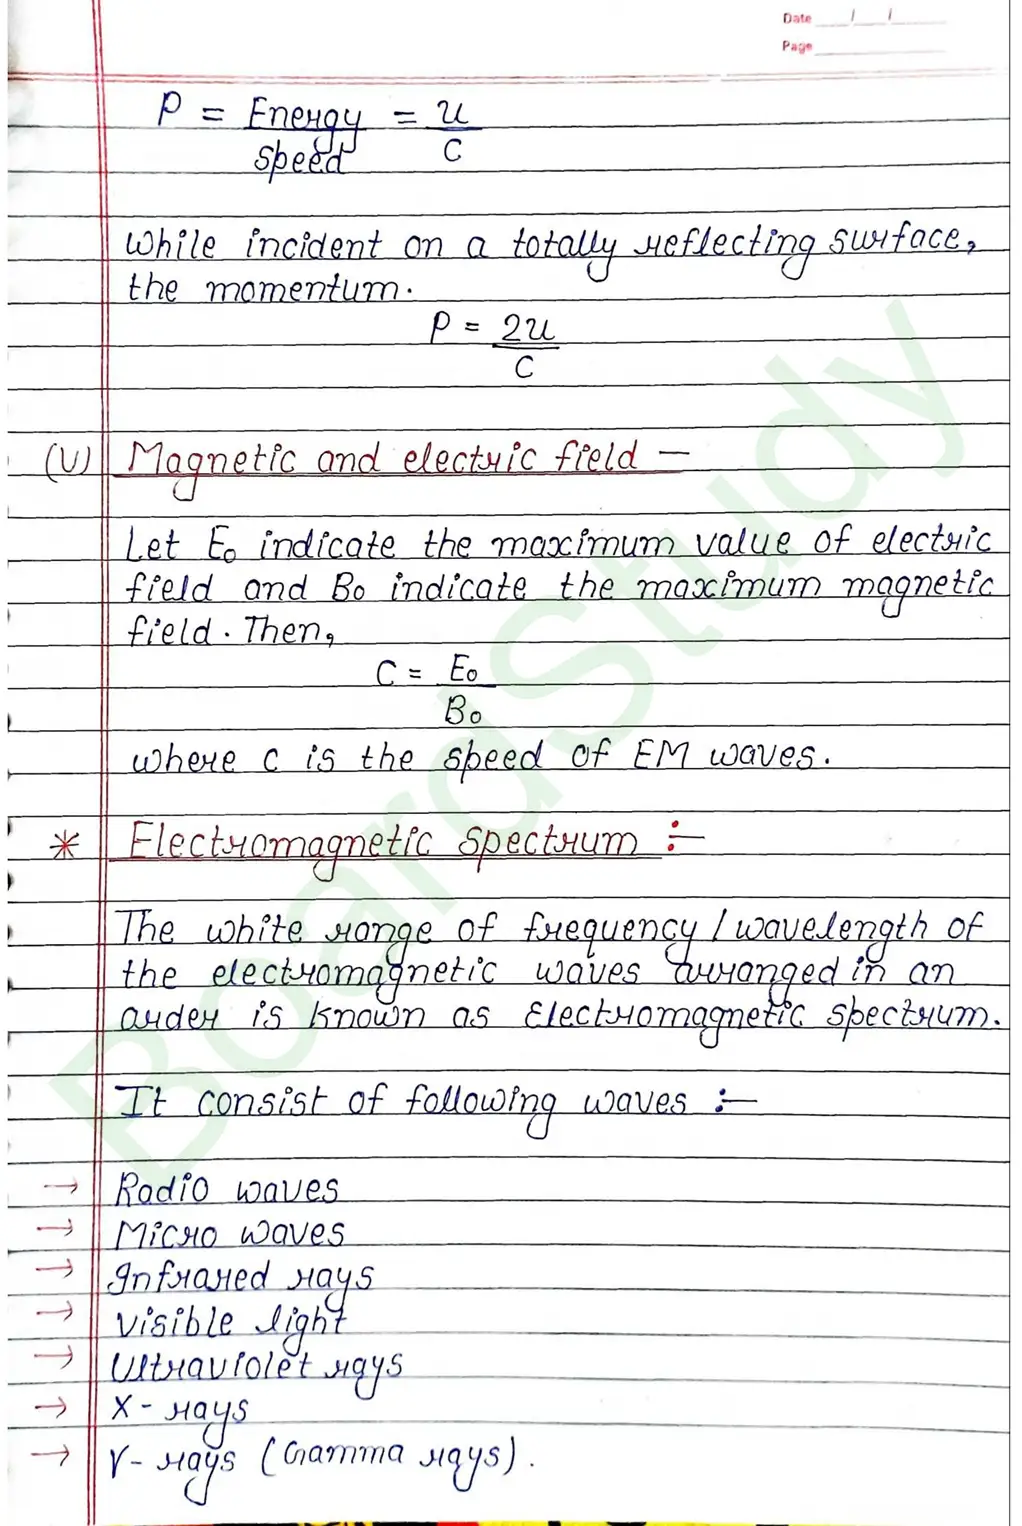 Date / /
Page
P = Energy = U
Speed C
While incident on a totally reflecting surface,
the momentum.
P = 2U
C
(V) Magnetic and electric field —
Let E₀ indicate the maximum value of electric
field and B₀ indicate the maximum magnetic
field. Then,
C = E₀
B₀
where c is the speed of EM waves.
* Electromagnetic spectrum :—
The white range of frequency / wavelength of
the electromagnetic waves arranged in an
order is known as Electromagnetic spectrum.
It consist of following waves :—
→ Radio waves
→ Micro waves
→ Infrared rays
→ Visible light
→ Ultraviolet rays
→ X - rays
→ γ - rays (Gamma rays).
BoardStudy